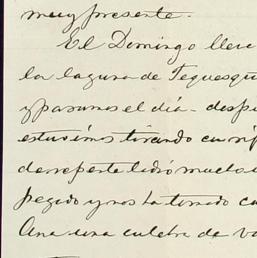 muy presente.
El Domingo lleve
la laguna de Tequesqu
y pasamos el dia - desp
estuvimos tirando con rif
de repente
pegido y nos ha tirado ca
Ana una culebra de va